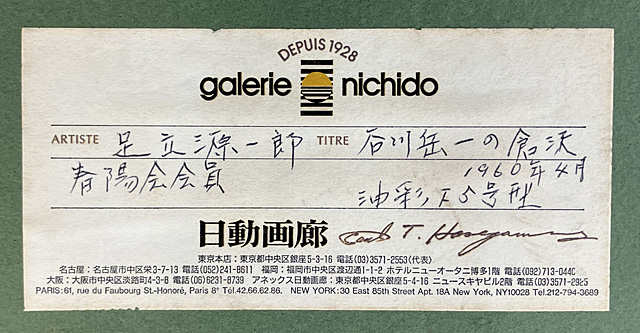 DEPUIS 1928
galerie nichido
ARTISTE 足立源一郎 TITRE 谷川岳一の倉沢
春陽会会員 1960年4月
油彩F5号型
日動画廊 T. Hasegawa
東京本店:東京都中央区銀座5-3-16 電話(03)3571-2553(代表)
名古屋:名古屋市中区栄3-7-13 電話(052)241-8611 福岡:福岡市中央区渡辺通1-1-2 ホテルニューオータニ博多1階 電話(092)713-0440
大阪:大阪市中央区淡路町4-3-8 電話(06)6231-8739 アネックス日動画廊:東京都中央区銀座5-4-16 ニュースキヤビル2階 電話(03)3571-2925
PARIS:61, rue du Faubourg St.-Honoré, Paris 8e Tél.42.66.62.86. NEW YORK:30 East 85th Street Apt. 18A New York, NY10028 Tel.212-794-3689